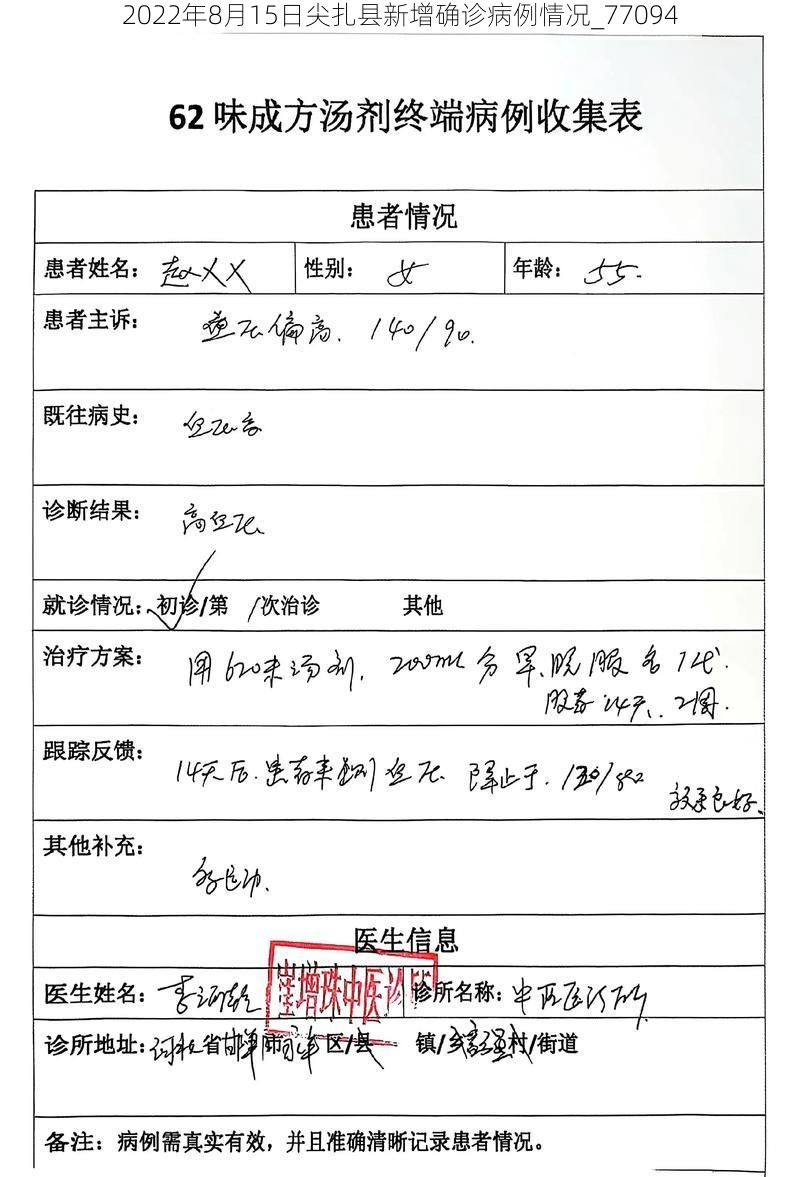 2022年8月15日尖扎县新增确诊病例情况_77094
62 味成方汤剂终端病例收集表
患者情况
患者姓名： 赵XX 性别： 女 年龄： 55.
患者主诉： 血压偏高. 140/90.
既往病史： 血压高
诊断结果： 高血压
就诊情况：初诊/第 /次治诊 其他
治疗方案： 用62味汤剂, 200ml 分早、晚服各1代.
服药14天、2周.
跟踪反馈： 14天后. 患者来量血压 降止于. 130/
效果良好、
其他补充：
医生信息
医生姓名： 李 崔增珠中医诊所 诊所名称： 中医诊所
诊所地址： 省邯郸市 区/县 镇/乡 村/街道
备注：病例需真实有效，并且准确清晰记录患者情况。